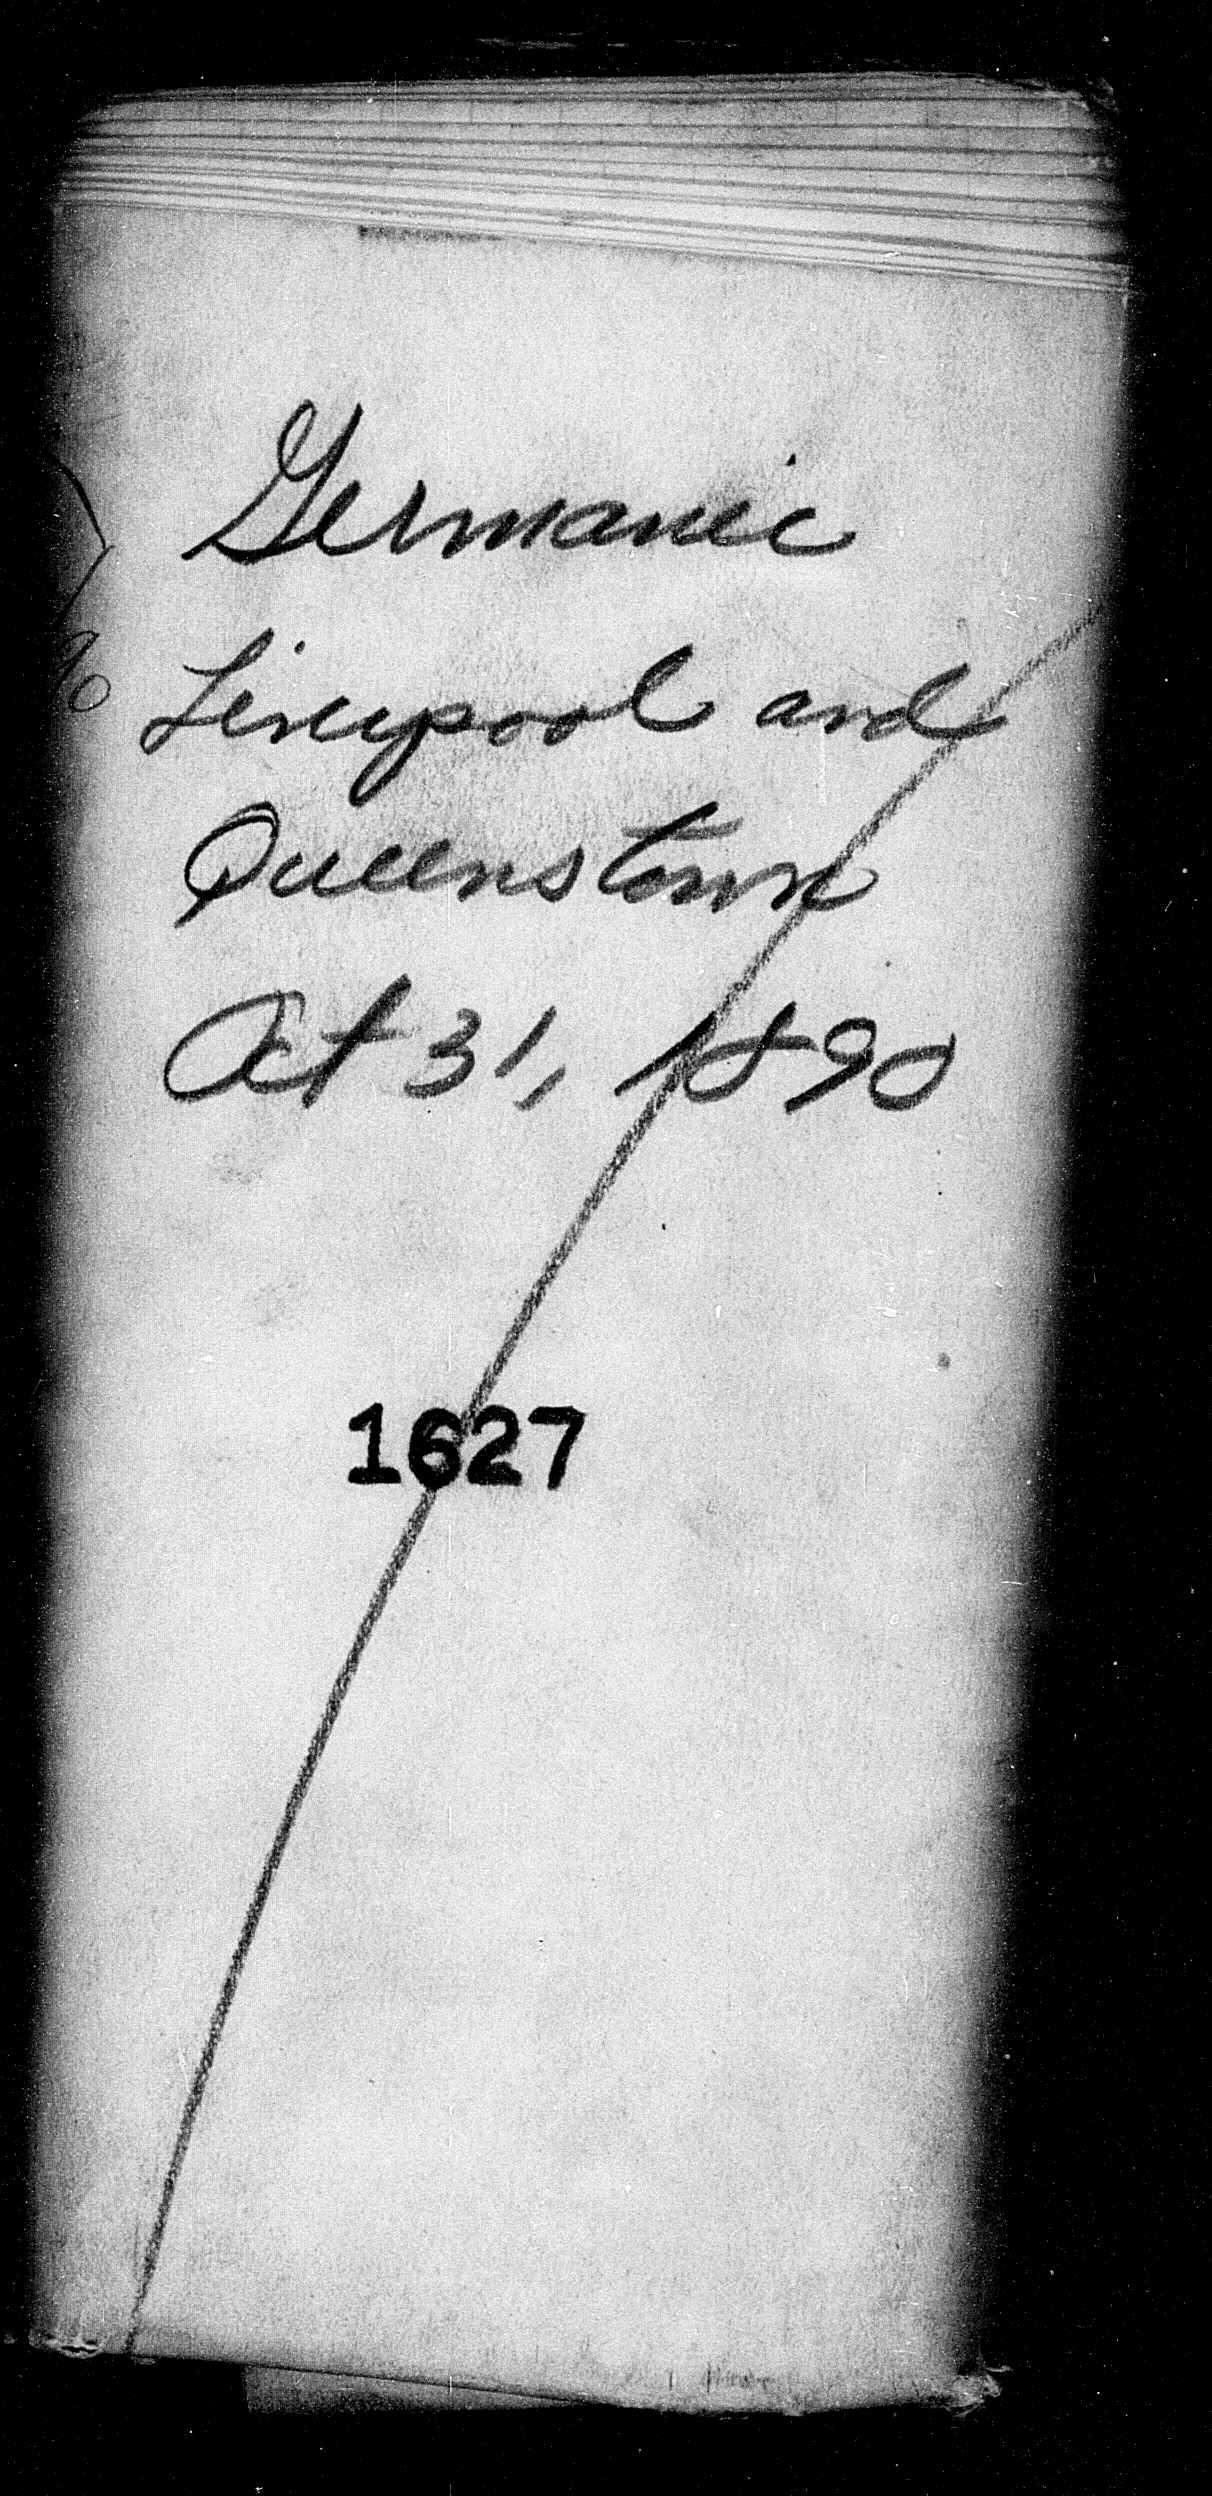 Germanic
Liverpool and
Queenstown
Oct 31, 1890
1627